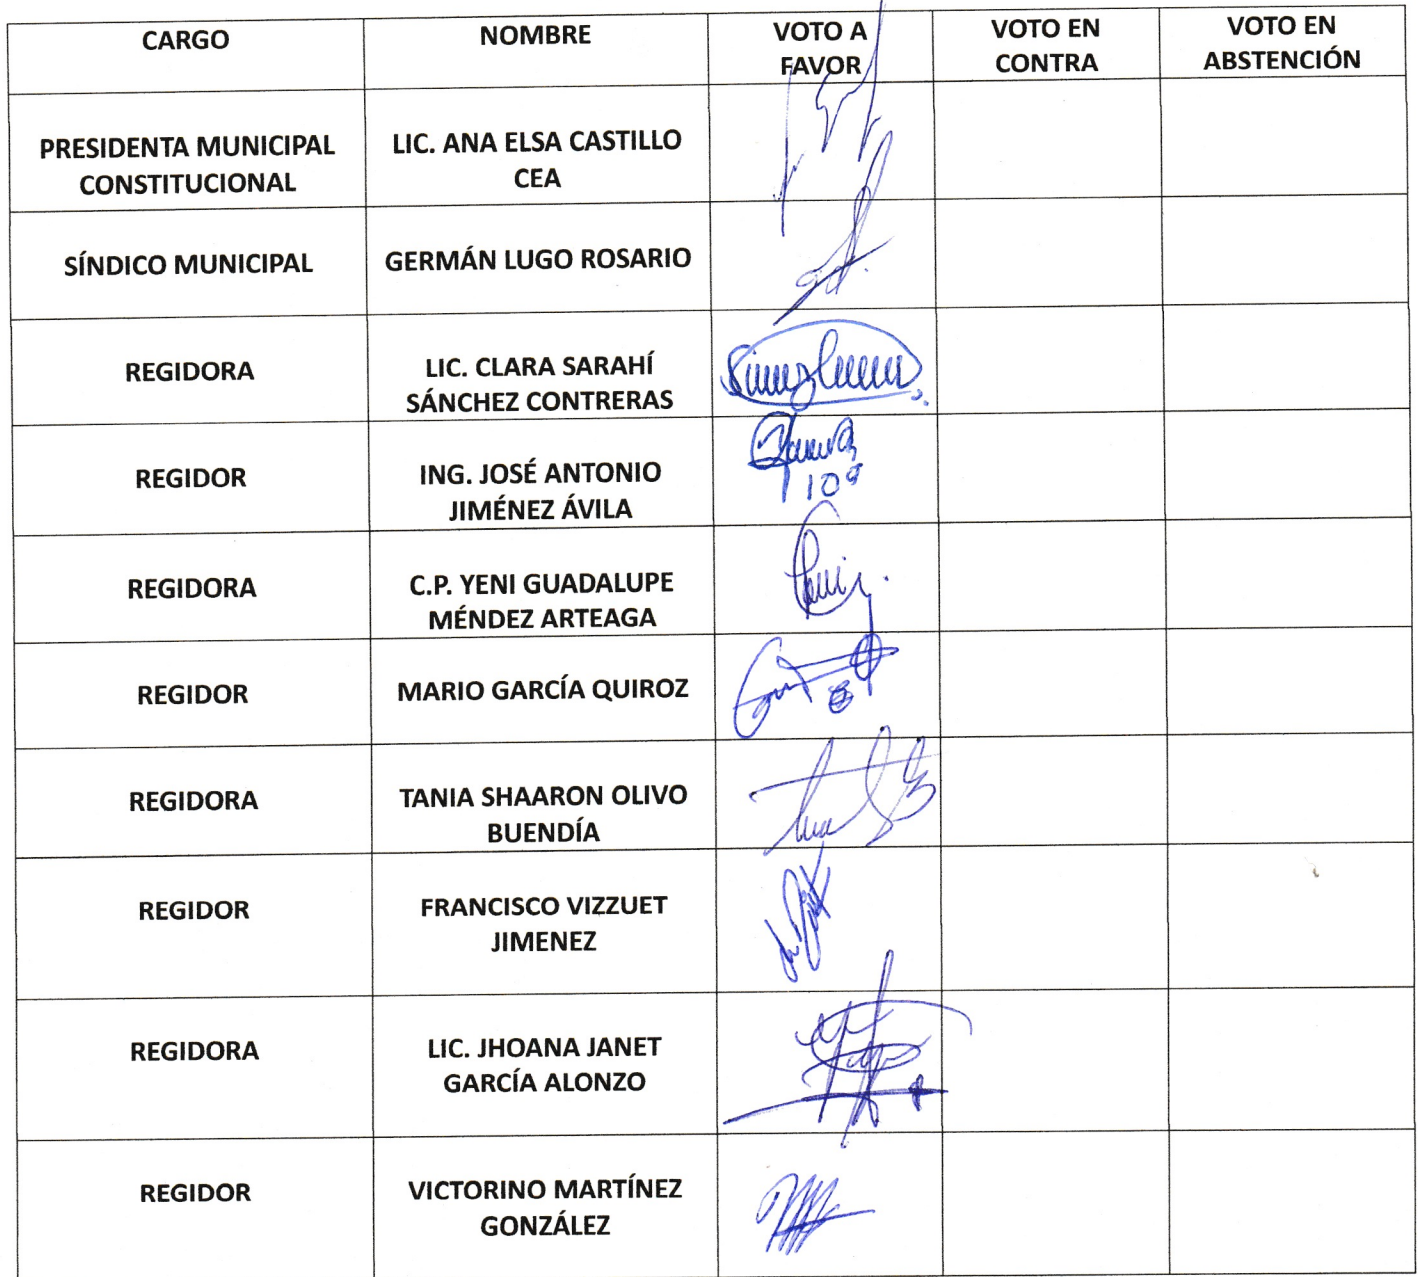 CARGO
NOMBRE
VOTO A
FAVOR
VOTO EN
CONTRA
VOTO EN
ABSTENCIÓN
PRESIDENTA MUNICIPAL
CONSTITUCIONAL
LIC. ANA ELSA CASTILLO
CEA
SÍNDICO MUNICIPAL
GERMÁN LUGO ROSARIO
REGIDORA
LIC. CLARA SARAHÍ
SÁNCHEZ CONTRERAS
REGIDOR
ING. JOSÉ ANTONIO
JIMÉNEZ ÁVILA
REGIDORA
C.P. YENI GUADALUPE
MÉNDEZ ARTEAGA
REGIDOR
MARIO GARCÍA QUIROZ
REGIDORA
TANIA SHAARON OLIVO
BUENDÍA
REGIDOR
FRANCISCO VIZZUET
JIMENEZ
REGIDORA
LIC. JHOANA JANET
GARCÍA ALONZO
REGIDOR
VICTORINO MARTÍNEZ
GONZÁLEZ